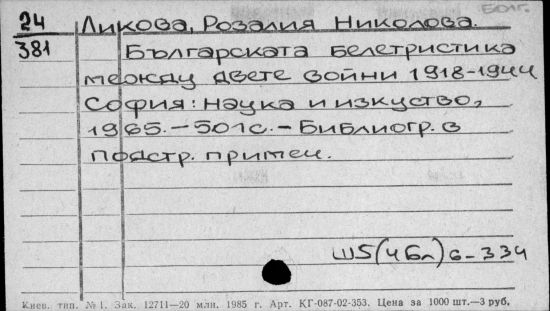 Болг.
24 Ликова, Розалия Николова.
381 Българската белетристика
между двете войни 1918-1944
София: Наука и изкуство,
1965.-501с.-Библиогр. в
подстр. примеч.
Ш5(4Бл)6-334
Киев. тип. №1. Зак. 12711—20 млн. 1985 г. Арт. КГ-087-02-353. Цена за 1000 шт.—3 руб.